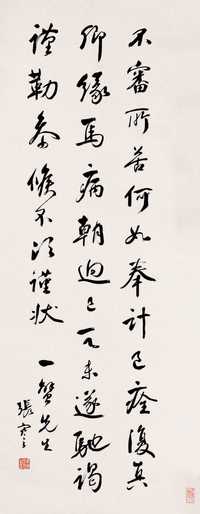 不審所苦何如奉計已痊復真
卿緣馬病朝迴已晚未遂馳謁
謹勒參候不次謹狀 一蟹先生
張謇